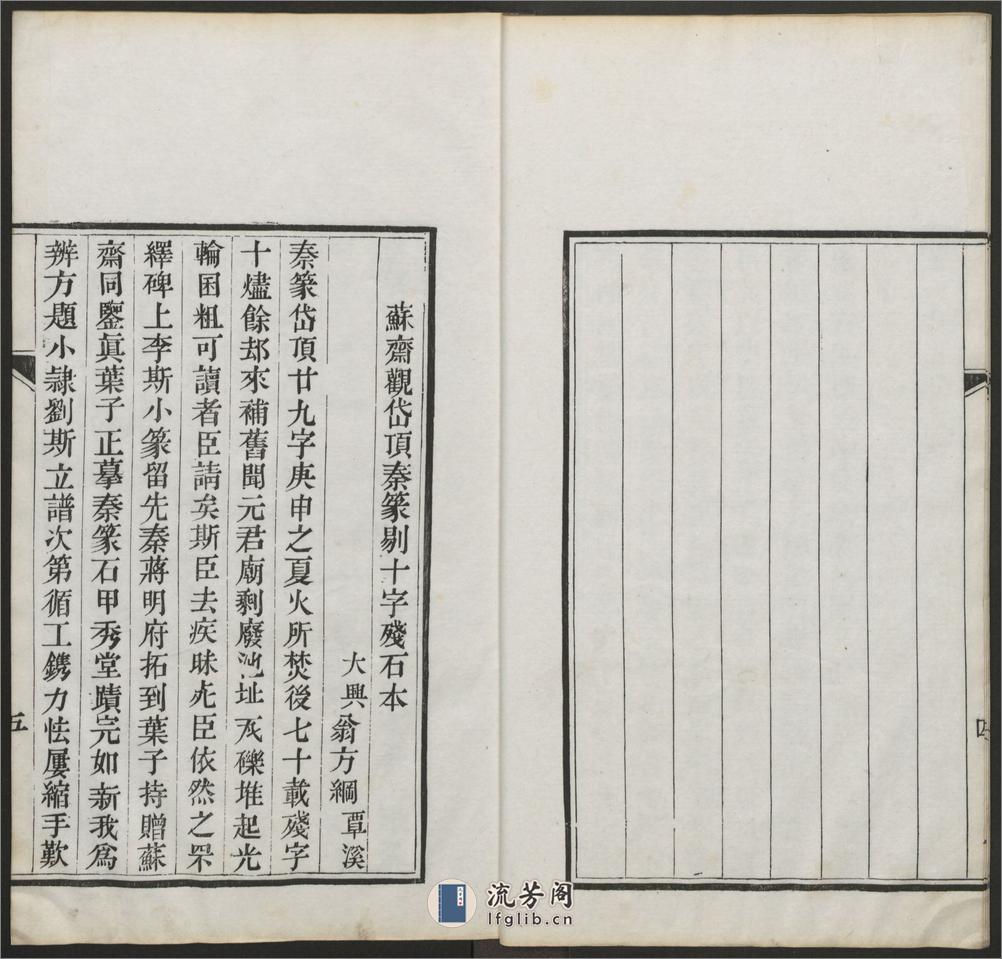 四
蘇齋觀岱頂秦篆剔十字殘石本
大興翁方綱覃溪
秦篆岱頂廿九字庚申之夏火所焚後七十載殘字
十燼餘却來補舊聞元君廟剩廢池址瓦礫堆起光
輪囷粗可讀者臣請矣斯臣去疾昧死臣依然之罘
繹碑上李斯小篆留先秦蔣明府拓到葉子持贈蘇
齋同鑒眞葉子正摹秦篆石甲秀堂蹟完如新我爲
辨方題小隷劉斯立譜次第循工鐫力怯屢縮手歎
五
流芳阁
lfglib.cn